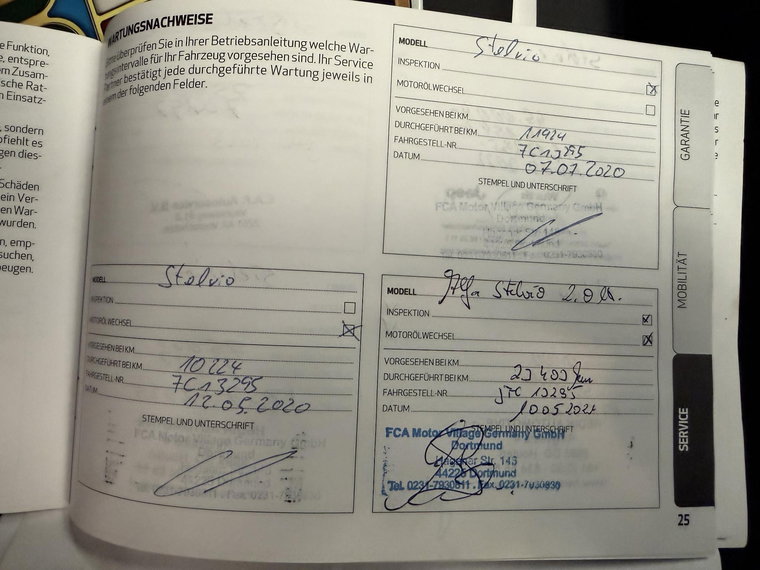 e Funktion,
e, entspre-
em Zusam-
ische Rat-
n Einsatz-
, sondern
ofiehlt es
gen dies-
Schäden
ein Ver-
en War-
wurden.
n, emp-
suchen,
eugen.
WARTUNGSNACHWEISE
Bitte überprüfen Sie in Ihrer Betriebsanleitung welche War-
tungsintervalle für Ihr Fahrzeug vorgesehen sind. Ihr Service
Partner bestätigt jede durchgeführte Wartung jeweils in
einem der folgenden Felder.
MODELL Stelvio
INSPEKTION
MOTORÖLWECHSEL
VORGESEHEN BEI KM
DURCHGEFÜHRT BEI KM 11924
FAHRGESTELL-NR. 7C13295
DATUM 07.07.2020
STEMPEL UND UNTERSCHRIFT
FCA Motor Village Germany GmbH
Dortmund
MODELL Stelvio
INSPEKTION
MOTORÖLWECHSEL
VORGESEHEN BEI KM
DURCHGEFÜHRT BEI KM 10224
FAHRGESTELL-NR. 7C13295
DATUM 12.05.2020
STEMPEL UND UNTERSCHRIFT
FCA Motor Village Germany GmbH
MODELL Alfa Stelvio 2.0
INSPEKTION
MOTORÖLWECHSEL
VORGESEHEN BEI KM
DURCHGEFÜHRT BEI KM 23400 km
FAHRGESTELL-NR. 13295
DATUM 10.05.2021
STEMPEL UND UNTERSCHRIFT
FCA Motor Village Germany GmbH
Dortmund
Str. 143
44225 Dortmund
Tel. 0231-7930811 . Fax. 0231-7930830
GARANTIE
MOBILITÄT
SERVICE
25